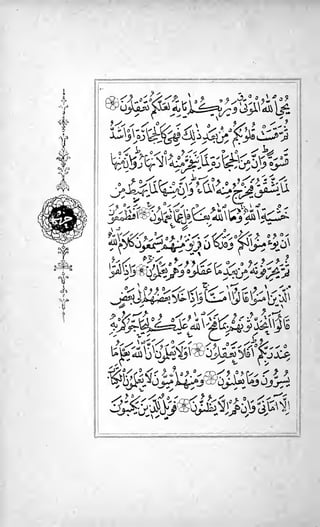 يحي الله الموتى ويريكم اياته لعلكم تعقلون
ثم قست قلوبكم من بعد ذلك فهي كالحجارة او اشد
قسوة وان من الحجارة لما يتفجر منه الانهار وان منها
لما يشقق فيخرج منه الماء وان منها لما يهبط من
خشية الله وما الله بغافل عما تعملون افتطمعون
ان يؤمنوا لكم وقد كان فريق منهم يسمعون كلام الله
ثم يحرفونه من بعد ما عقلوه وهم يعلمون واذا لقوا
الذين امنوا قالوا امنا واذا خلا بعضهم الى بعض
قالوا اتحدثونهم بما فتح الله عليكم ليحاجوكم به
عند ربكم افلا تعقلون اولا يعلمون ان الله يعلم ما
يسرون وما يعلنون ومنهم اميون لا يعلمون الكتاب
الا اماني وان هم الا يظنون فويل للذين يكتبون